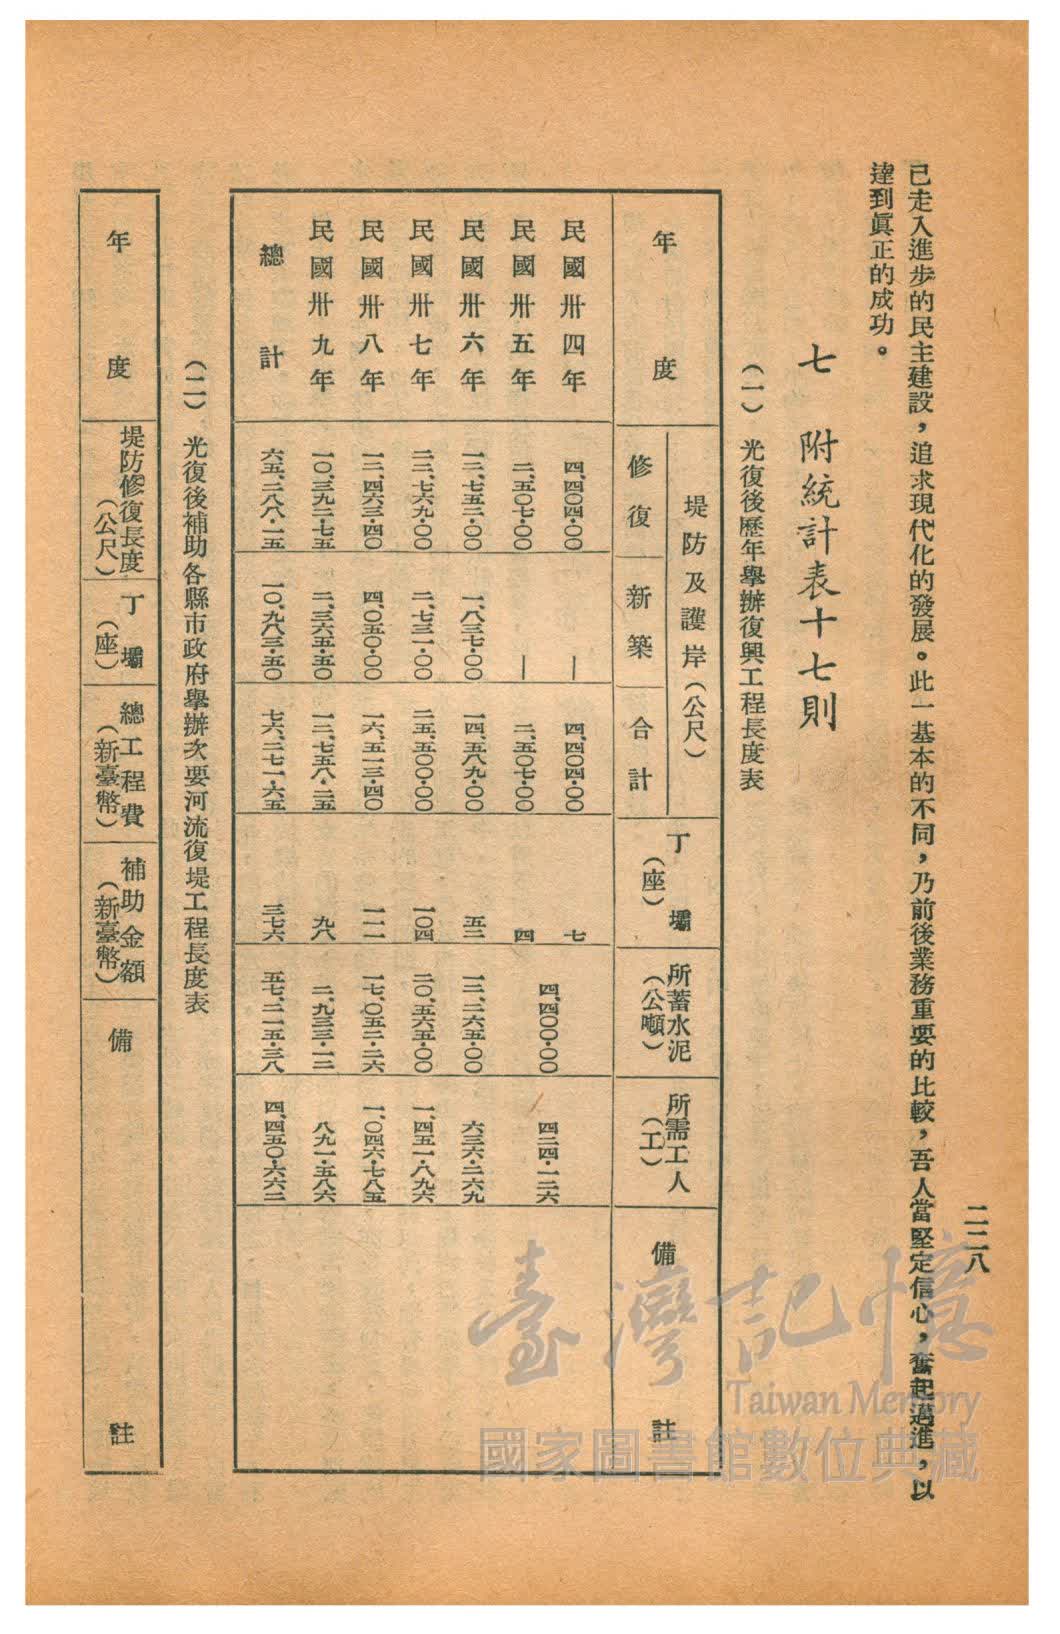 二二八
已走入進步的民主建設，追求現代化的發展。此一基本的不同，乃前後業務重要的比較，吾人當堅定信心，奮起邁進，以
達到眞正的成功。
七 附統計表十七則
（一） 光復後歷年舉辦復興工程長度表
年度 堤防及護岸（公尺） 丁壩（座） 所蓄水泥（公噸） 所需工人（工） 備註
修復 新築 合計
民國卅四年 四、四〇四・〇〇 — 四、四〇四・〇〇 七
民國卅五年 二、五〇七・〇〇 — 二、五〇七・〇〇 四
四、四〇〇・〇〇 四二四・一二六
民國卅六年 一二、七五二・〇〇 一、八三七・〇〇 一四、五八九・〇〇 五二 一二、二六五・〇〇 六三六・二六九
民國卅七年 二二、七六九・〇〇 二、七三一・〇〇 二五、五〇〇・〇〇 一〇四 二〇、五六五・〇〇 一、四五一・八九六
民國卅八年 一二、四六三・四〇 四、〇五〇・〇〇 一六、五一三・四〇 一一一 一七、〇五二・二六 一、〇四六・七八五
民國卅九年 一〇、三九二・七五 二、三六五・五〇 一二、七五八・二五 九八 二、九三三・一二 八九一・五八六
總計 六五、二八八・一五 一〇、九八三・五〇 七六、二七一・六五 三七六 五七、二一五・三八 四、四五〇・六六二
（二） 光復後補助各縣市政府舉辦次要河流復堤工程長度表
年度 堤防修復長度（公尺） 丁壩（座） 總工程費（新臺幣） 補助金額（新臺幣） 備註
臺灣記憶
Taiwan Memory
國家圖書館數位典藏